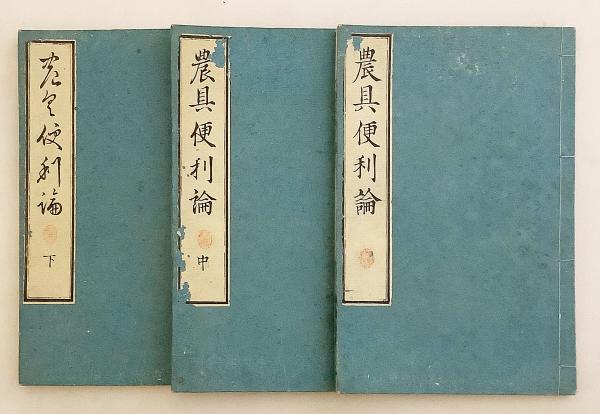 農具便利論
農具便利論
中
農具便利論
下